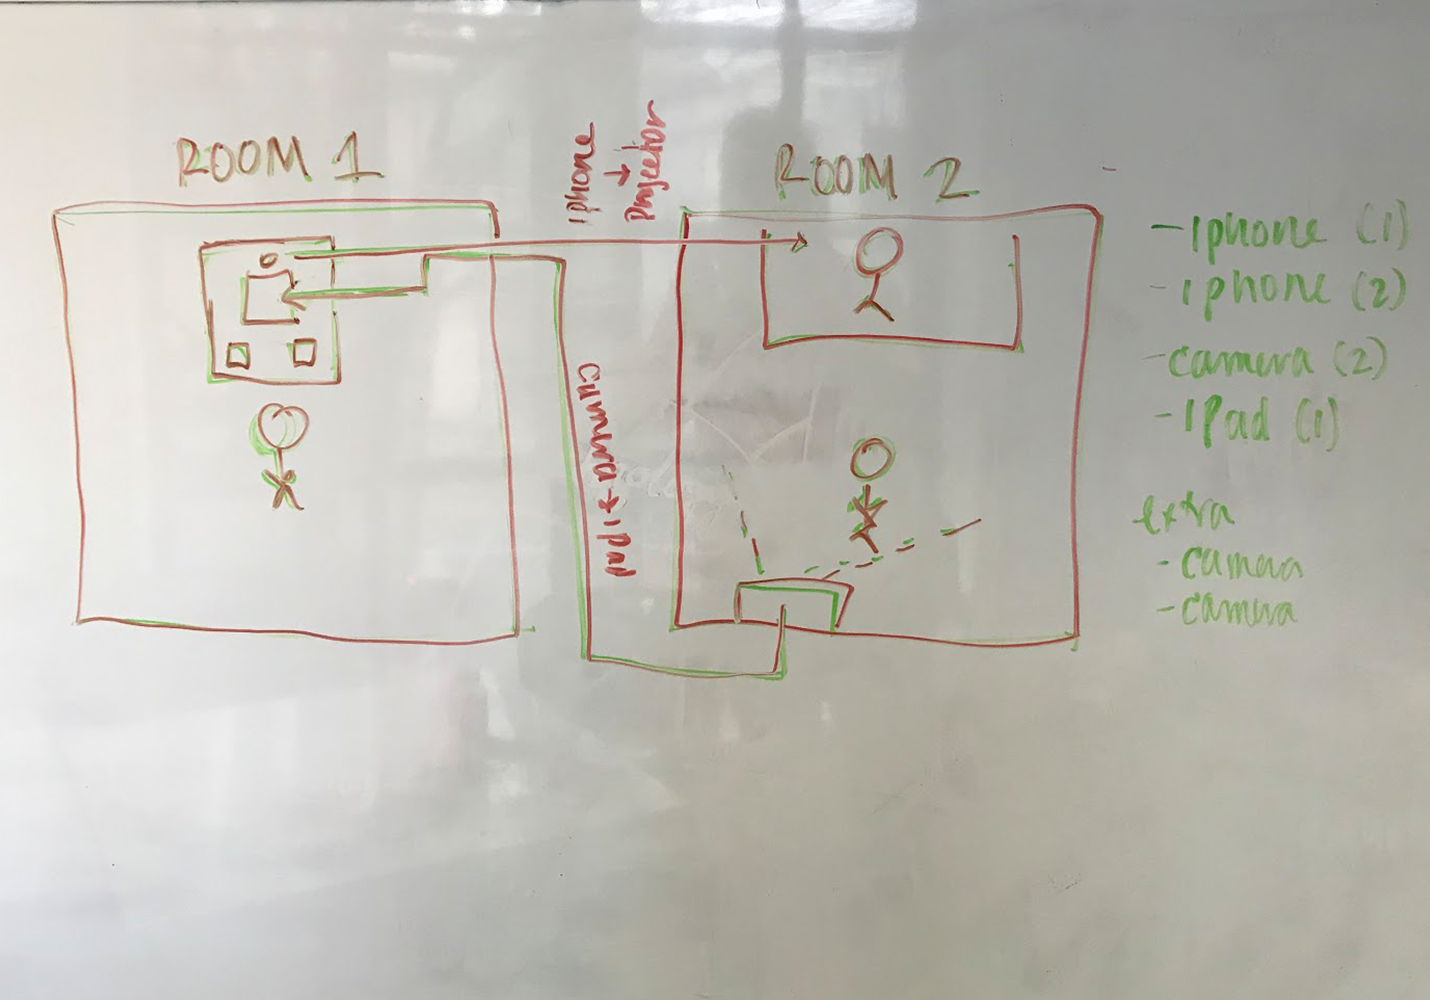 ROOM 1
Iphone
→
Projector
ROOM 2
camera → ipad
- Iphone (1)
- Iphone (2)
- camera (2)
- IPad (1)
extra
- camera
- camera